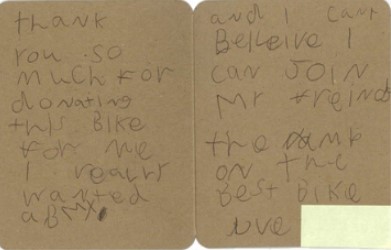 thank
you so
much for
donating
this Bike
for me
I realy
wanted
a Bmx.
and I cant
Beleive I
can JOIN
my freind
the
on the
Best Bike
love